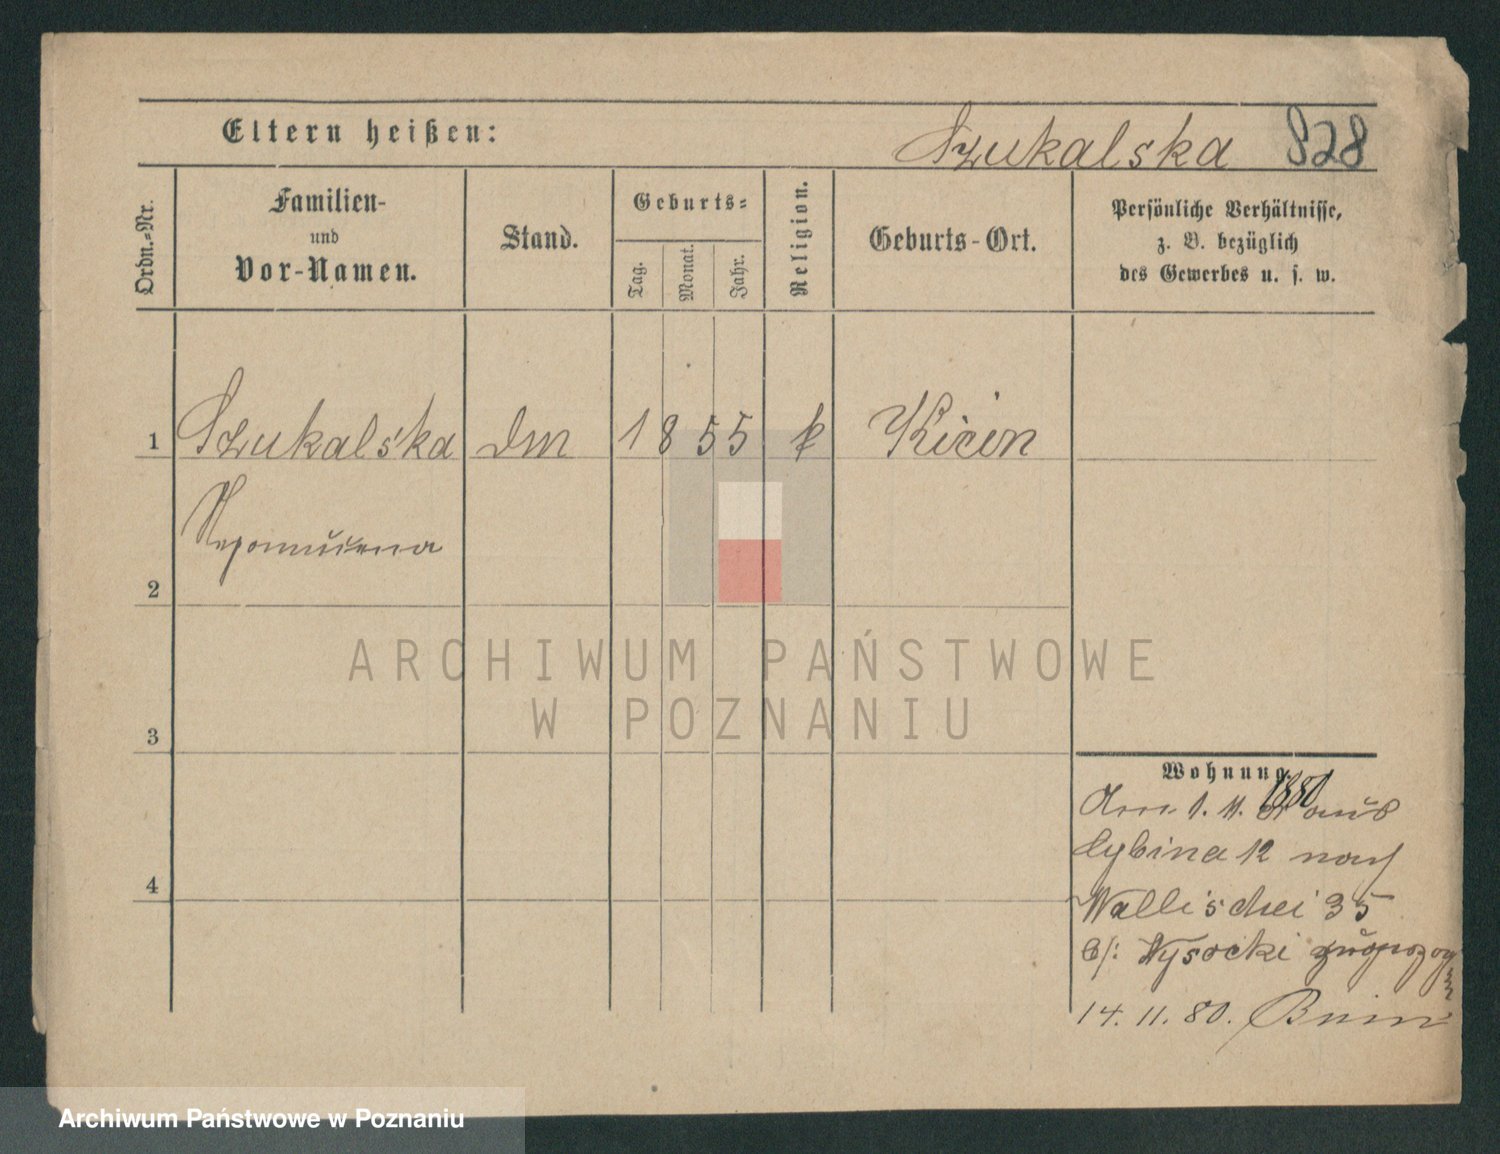 Eltern heißen:
Szukalska 828
Ordn.-Nr.
Familien-
und
Vor-Namen.
Stand.
Geburts-
Tag.
Monat.
Jahr.
Religion.
Geburts-Ort.
Persönliche Verhältnisse,
z. B. bezüglich
des Gewerbes u. s. w.
1 Szukalska Dm 1855 k Kicin
Nepomucena
2
ARCHIWUM PAŃSTWOWE
W POZNANIU
3
Wohnung
Am 1. 11. 1880 aus
Cybina 12 nach
4
Wallischei 35
b/: Wysocki zugezogen
14. 11. 80.
Archiwum Państwowe w Poznaniu